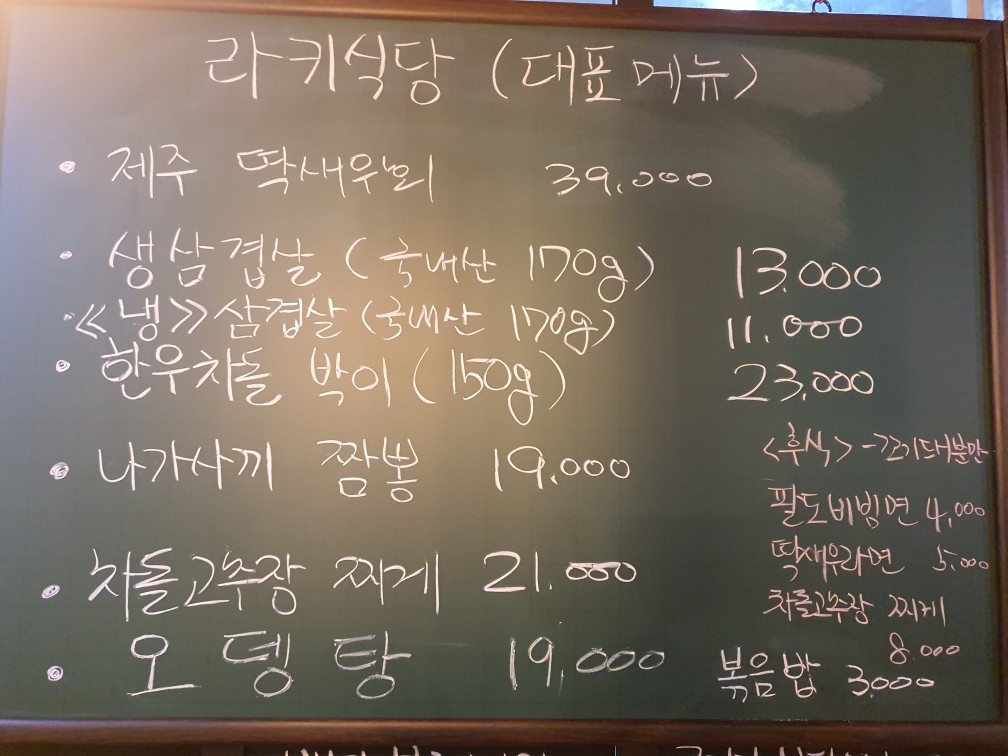 라키식당 (대표메뉴)
• 제주 딱새우회 39.000
• 생삼겹살 (국내산 170g) 13.000
• <<냉>> 삼겹살 (국내산 170g) 11.000
• 한우차돌 박이 (150g) 23.000
• 나가사끼 짬뽕 19.000
• 차돌고추장 찌게 21.000
• 오뎅탕 19,000
<후식> -고기드신분만
팔도비빔면 4,000
딱새우라면 5.000
차돌고추장 찌게
8.000
볶음밥 3.000